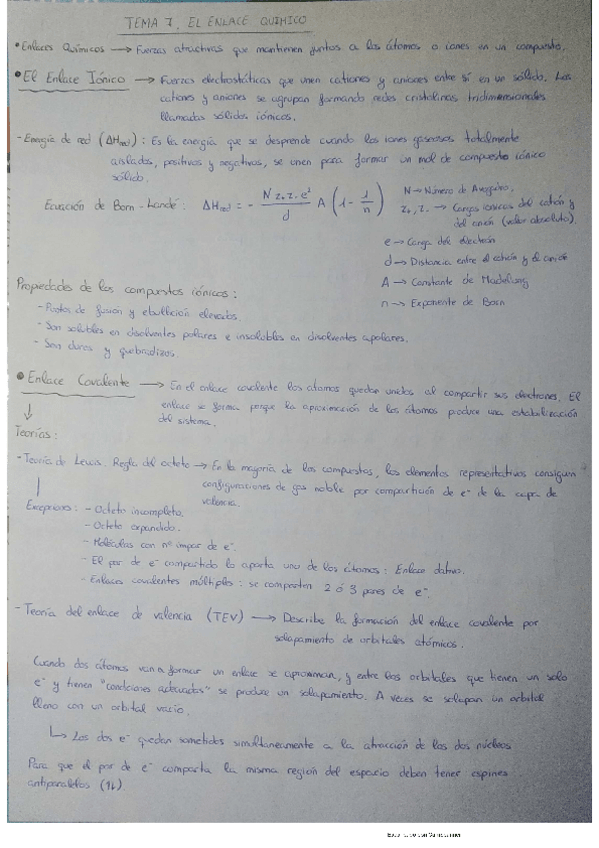 TEMA 7. EL ENLACE QUÍMICO
• Enlaces Químicos → Fuerzas atractivas que mantienen juntos a los átomos o iones en un compuesto.
• El Enlace Iónico → Fuerzas electrostáticas que unen cationes y aniones entre sí en un sólido. Los
cationes y aniones se agrupan formando redes cristalinas tridimensionales
llamadas sólidos iónicos.
- Energía de red (ΔHred): Es la energía que se desprende cuando los iones gaseosos totalmente
aislados, positivos y negativos, se unen para formar un mol de compuesto iónico
sólido.
Ecuación de Born-Landé: ΔHred = - (N z+ z- e² / d) A (1 - 1/n)
N → Número de Avogadro.
z+, z- → Cargas iónicas del catión y
del anión (valor absoluto).
e → Carga del electrón
d → Distancia entre el catión y el anión
A → Constante de Madelung
n → Exponente de Born
Propiedades de los compuestos iónicos:
- Puntos de fusión y ebullición elevados.
- Son solubles en disolventes polares e insolubles en disolventes apolares.
- Son duros y quebradizos.
• Enlace Covalente → En el enlace covalente los átomos quedan unidos al compartir sus electrones. El
enlace se forma porque la aproximación de los átomos produce una estabilización
del sistema.
↓
Teorías:
- Teoría de Lewis. Regla del octeto → En la mayoría de los compuestos, los elementos representativos consiguen
configuraciones de gas noble por compartición de e⁻ de la capa de
valencia.
Excepciones: - Octeto incompleto.
- Octeto expandido.
- Moléculas con nº impar de e⁻.
- El par de e⁻ compartido lo aporta uno de los átomos: Enlace dativo.
- Enlaces covalentes múltiples: se comparten 2 ó 3 pares de e⁻.
- Teoría del enlace de valencia (TEV) → Describe la formación del enlace covalente por
solapamiento de orbitales atómicos.
Cuando dos átomos van a formar un enlace se aproximan, y entre los orbitales que tienen un solo
e⁻ y tienen "condiciones adecuadas" se produce un solapamiento. A veces se solapan un orbital
lleno con un orbital vacío.
↳ Los dos e⁻ quedan sometidos simultáneamente a la atracción de los dos núcleos
Para que el par de e⁻ comparta la misma región del espacio deben tener espines
antiparalelos (↑↓)